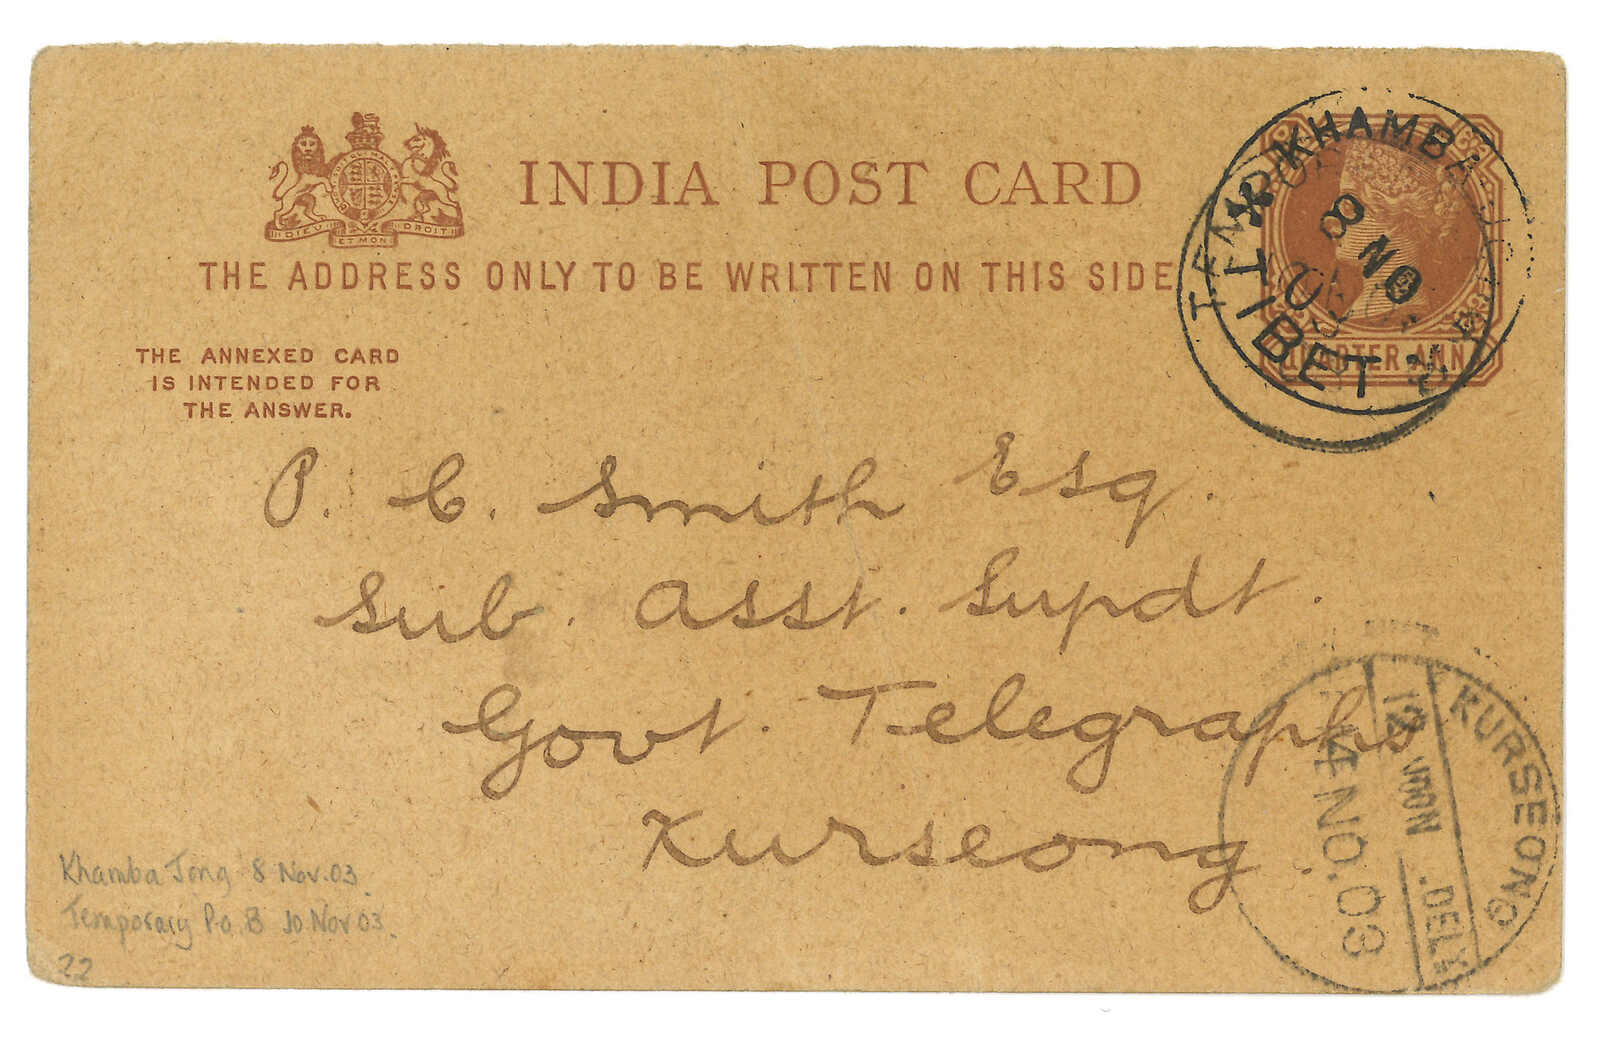 HONI SOIT QUI MAL Y PENSE
DIEU ET MON DROIT
INDIA POST CARD
THE ADDRESS ONLY TO BE WRITTEN ON THIS SIDE
THE ANNEXED CARD
IS INTENDED FOR
THE ANSWER.
QUARTER ANNA
KHAMBA
8 NO
TIBET
P. C. Smith Esq.
Sub. Asst. Supdt.
Govt. Telegraphs
Kurseong.
KURSEONG
12 NOON .DELY
14 NO. 03
Khamba Jong 8 Nov. 03.
Temporary P.O. B 10 Nov 03.
22